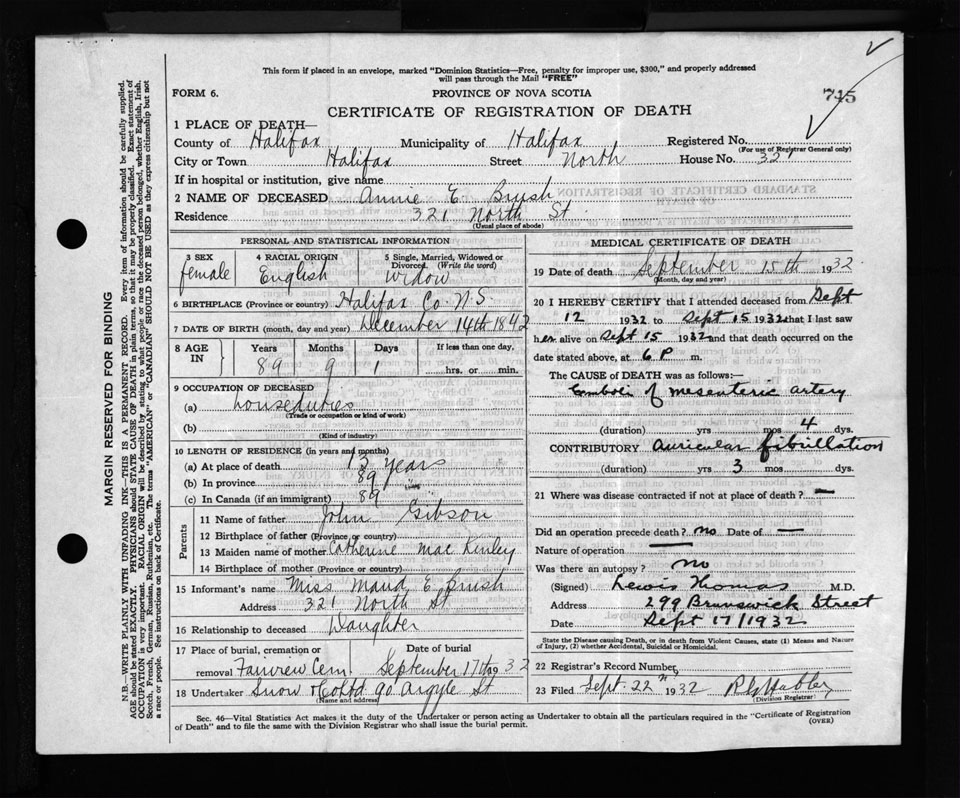 This form if placed in an envelope, marked "Dominion Statistics—Free, penalty for improper use, $300," and properly addressed
will pass through the Mail "FREE"
FORM 6.
PROVINCE OF NOVA SCOTIA
745
CERTIFICATE OF REGISTRATION OF DEATH
1 PLACE OF DEATH—
County of Halifax Municipality of Halifax Registered No.
(For use of Registrar General only)
City or Town Halifax Street North House No. 321
If in hospital or institution, give name
2 NAME OF DECEASED Annie E. Brush
Residence 321 North St
(Usual place of abode)
PERSONAL AND STATISTICAL INFORMATION
3 SEX 4 RACIAL ORIGIN 5 Single, Married, Widowed or
Divorced (Write the word)
female English Widow
6 BIRTHPLACE (Province or country) Halifax Co N.S.
7 DATE OF BIRTH (month, day and year) December 14th 1842
8 AGE IN Years Months Days If less than one day,
89 9 1 hrs. or min.
9 OCCUPATION OF DECEASED
(a) houseduties
(Trade or occupation or kind of work)
(b)
(Kind of industry)
10 LENGTH OF RESIDENCE (in years and months)
(a) At place of death 13 Years
(b) In province 89
(c) In Canada (if an immigrant) 89
Parents
11 Name of father John Gibson
12 Birthplace of father (Province or country)
13 Maiden name of mother Catherine MacKinley
14 Birthplace of mother (Province or country)
15 Informant's name Miss Maud E Brush
Address 321 North St
16 Relationship to deceased Daughter
17 Place of burial, cremation or Date of burial
removal Fairview Cem. September 17th 1932
18 Undertaker Snow & Co Ltd. 90 Argyle St
(Name and address)
MEDICAL CERTIFICATE OF DEATH
19 Date of death September 15th 1932
(Month, day and year)
20 I HEREBY CERTIFY that I attended deceased from Sept
12 1932 to Sept 15 1932 that I last saw
her alive on Sept 15 1932 and that death occurred on the
date stated above, at 6 P m.
The CAUSE of DEATH was as follows:—
Emboli of mesenteric artery
(duration) yrs mos 4 dys.
CONTRIBUTORY auricular fibrillation
(duration) yrs 3 mos dys.
21 Where was disease contracted if not at place of death? —
Did an operation precede death? no Date of —
Nature of operation —
Was there an autopsy? no
(Signed) Lewis Thomas M.D.
Address 299 Brunswick Street
Date Sept 17/1932
State the Disease causing Death, or in death from Violent Causes, state (1) Means and Nature
of Injury, (2) whether Accidental, Suicidal or Homicidal.
22 Registrar's Record Number
23 Filed Sept. 22nd 1932
(Division Registrar)
Sec. 46—Vital Statistics Act makes it the duty of the Undertaker or person acting as Undertaker to obtain all the particulars required in the "Certificate of Registration
of Death" and to file the same with the Division Registrar who shall issue the burial permit.
(OVER)
MARGIN RESERVED FOR BINDING
N.B.—WRITE PLAINLY WITH UNFADING INK—THIS IS A PERMANENT RECORD. Every item of information should be carefully supplied.
AGE should be stated EXACTLY. PHYSICIANS should STATE CAUSE OF DEATH in plain terms, so that it may be properly classified. Exact statement of
OCCUPATION is very important. RACIAL ORIGIN will be described by stating to what people or race the deceased person belonged, whether English, Irish,
Scotch, French, German, Russian, Ruthenian, etc. The terms "AMERICAN" or "CANADIAN" SHOULD NOT BE USED as they express citizenship but not
a race or people. See instructions on back of Certificate.